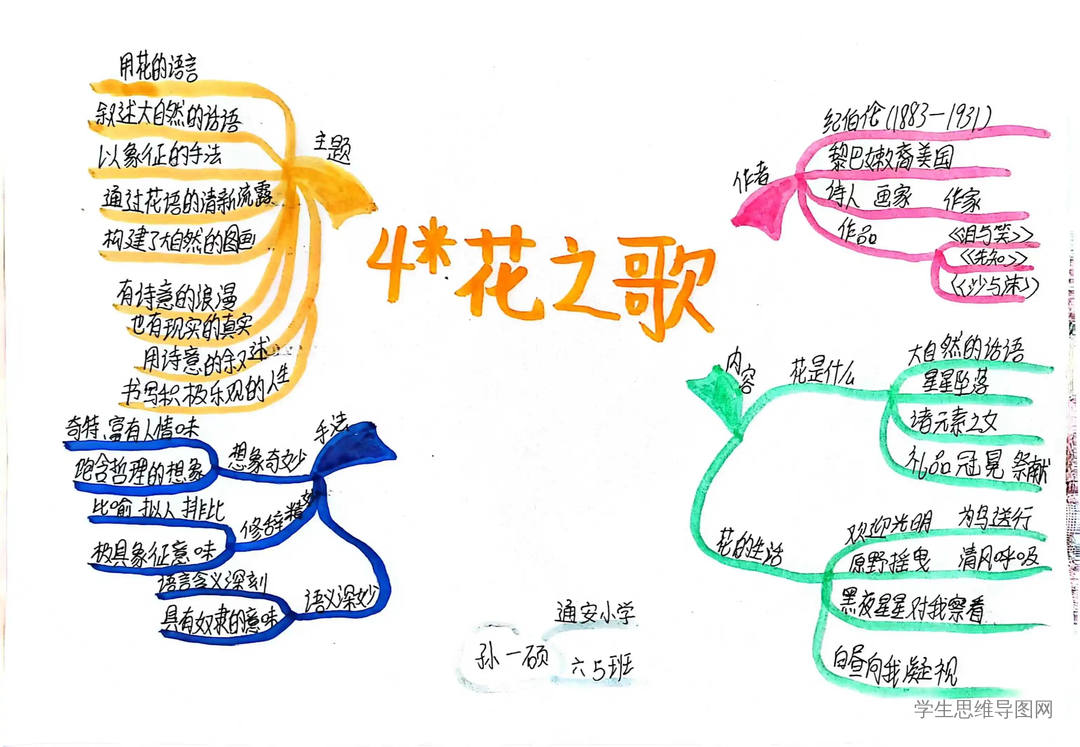 4*花之歌
主题
用花的语言
叙述大自然的话语
以象征的手法
通过花语的清新流露
构建了大自然的图画
有诗意的浪漫
也有现实的真实
用诗意的叙述
书写积极乐观的人生
手法
想象奇妙
奇特,富有人情味
饱含哲理的想象
修辞精妙
比喻 拟人 排比
极具象征意味
语义深妙
语言含义深刻
具有奴隶的意味
作者
纪伯伦(1883—1931)
黎巴嫩裔美国
诗人 画家 作家
作品
《泪与笑》
《先知》
《沙与沫》
内容
花是什么
大自然的话语
星星坠落
诸元素之女
礼品 冠冕 祭献
花的生活
欢迎光明 为鸟送行
原野摇曳 清风呼吸
黑夜星星对我察看
白昼向我凝视
孙一硕
通安小学
六5班
学生思维导图网